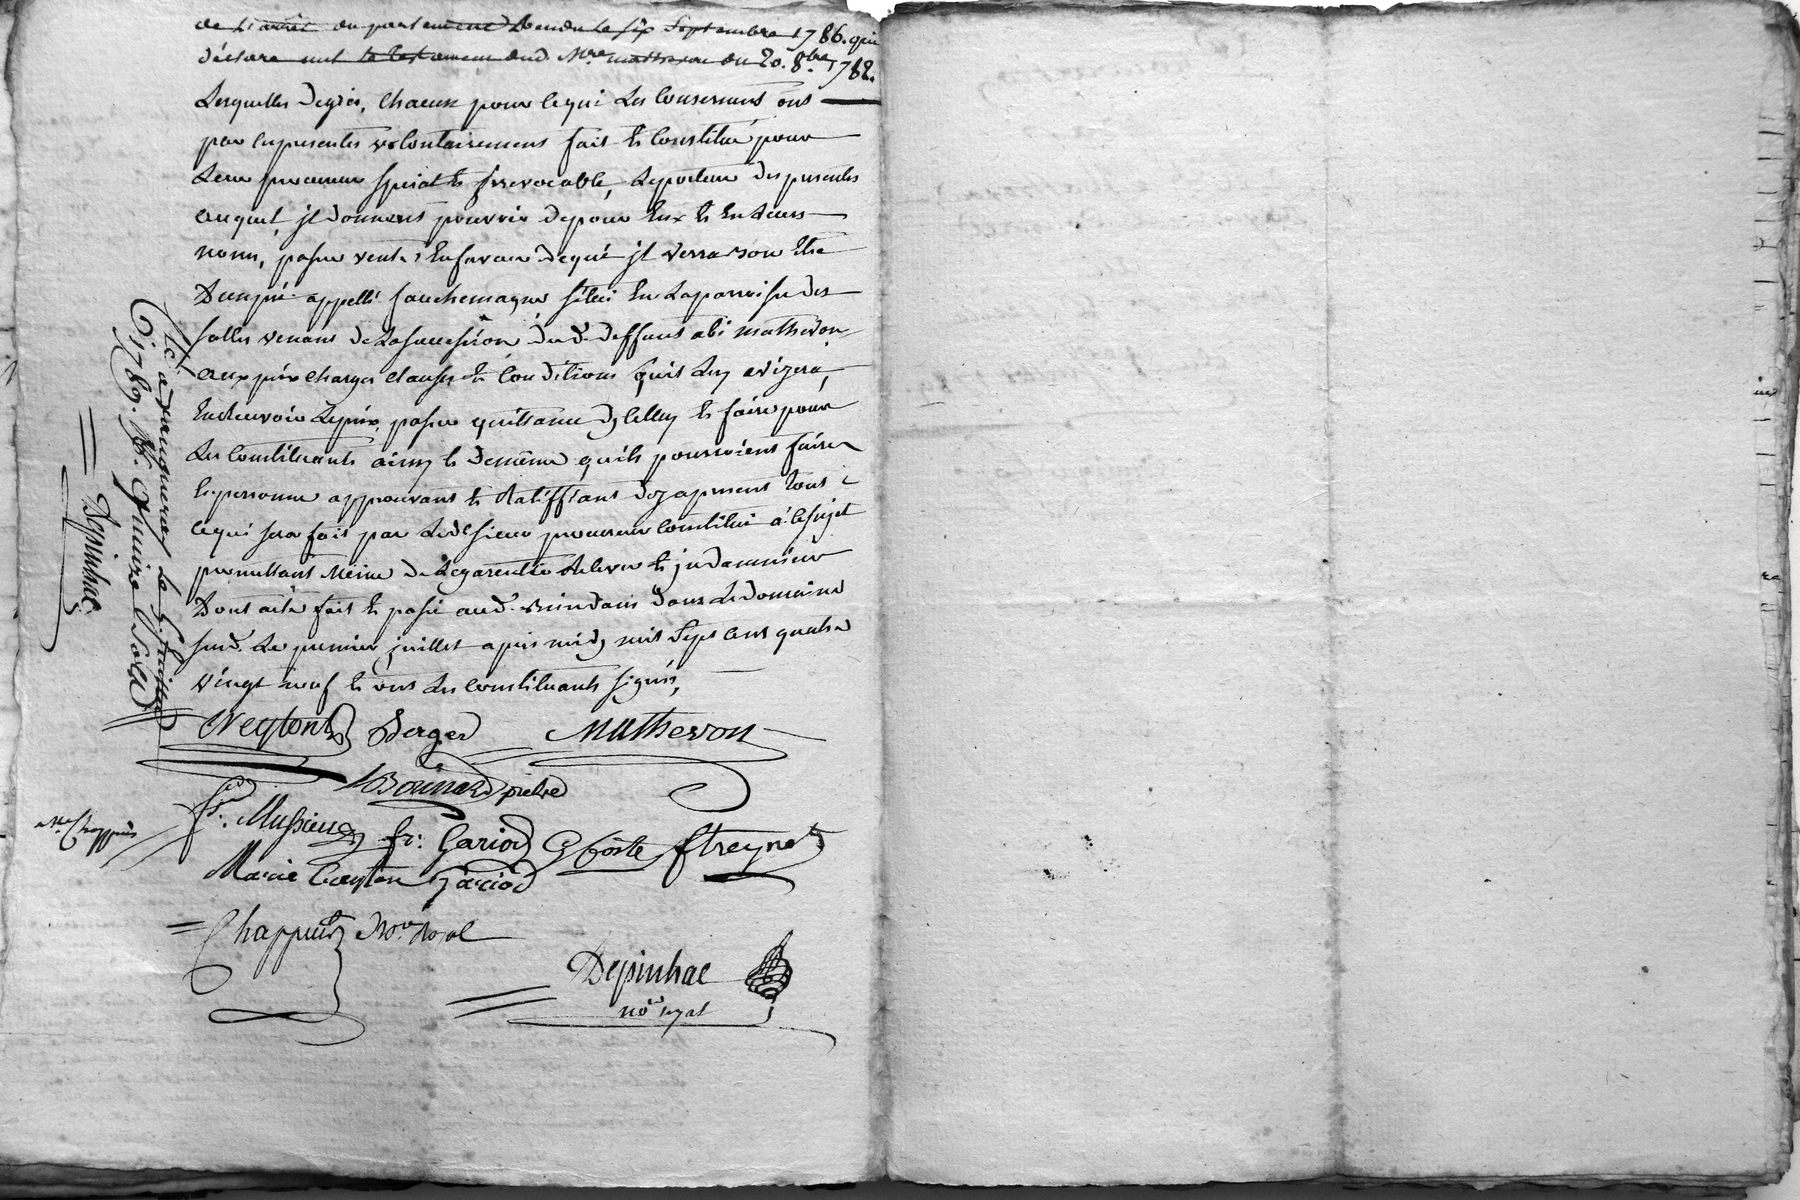 de l'arrêt du parlement Rendu le six Septembre 1786. qui
déclare nul le testament dud. Mre matheron du 20. 8bre 1782.
Lesquelles de gré, chacun pour ce qui les Concernent ont
par ces presentes volontairement fait et Constitué pour
Leur procureur special et jrrevocable, Le porteur des presentes
auquel, jl donnent pouvoir de pour Eux et En Leurs
noms, passer vente, En faveur de qui jl verra bon Etre
D'un pré appellé fauchemagne, situé En La parroisse des
salles venant de La succession dud. deffunt abé matheron
aux prix charges clauses et Conditions qu'il Luy avizera,
En Recevoir Le prix, passer quittance d'jcelluy et faire pour
Les Constituants ainsy et de même qu'ils pourroient faire
En personne approuvant et Ratiffiant dez apresent tout
ce qui sera fait par Led. sieur procureur Constitué à ce sujet
promettant même de Le garentir Relever et jndamniser
Dont acte fait et passé aud. dans Le domaine
sud. Le premier juillet apres midy mil sept cent quatre
vingt neuf et ont Les Constituants signés,
Neytont Berger Matheron
Boiner prêtre
fr. Gariod Coste Streynet
Marie Gariod
Chappuis No.re Royal
Depinhac
no.re royal
mre Chappuis
1789. Rt. Quinze Sols
Depinhac